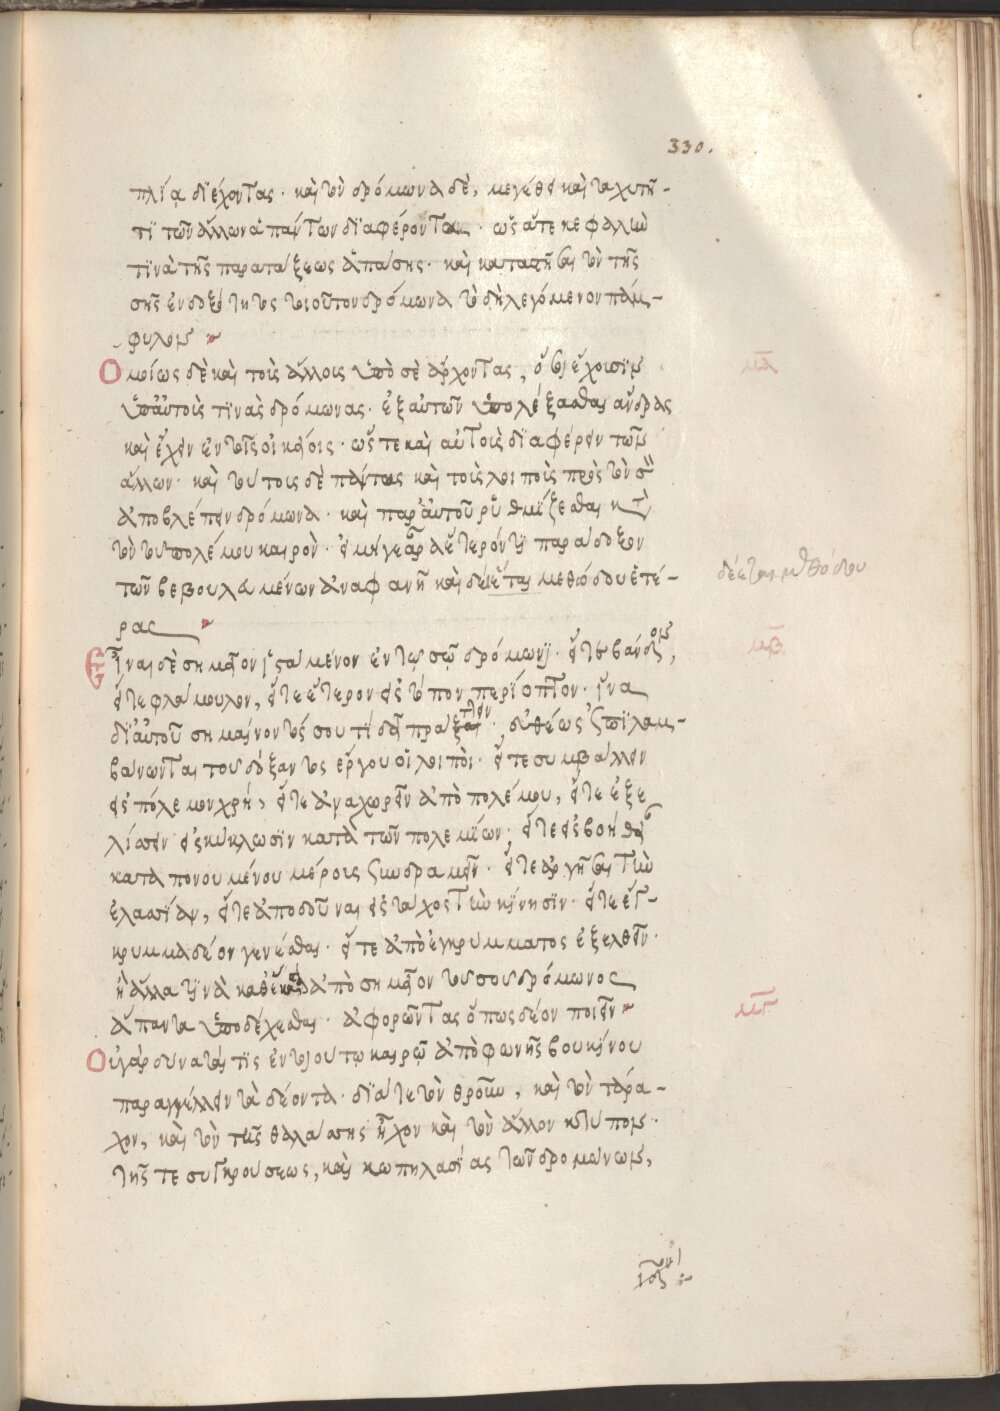 330.
πλία διέχοντας. καὶ τὸν δρόμωνα δὲ, μεγέθει καὶ ταχυτῆ-
τι τῶν ἄλλων ἁπάντων διαφέροντα. ὡς ἅτε κεφαλὴν
τινὰ τῆς παρατάξεως ἁπάσης. καὶ καταστῆσαι τὸν τῆς
σῆς ἐνδοξότητος τοιοῦτον δρόμωνα τὸ δὴ λεγόμενον πάμ-
φυλον
Ὁμοίως δὲ καὶ τοὺς ἄλλους ὑπὸ σὲ ἄρχοντας, ὅσοι ἔχουσιν
ὑπ' αὐτοὺς τινὰς δρόμωνας. ἐξ αὐτῶν ὑπολέξασθαι ἄνδρας
καὶ ἔχειν ἐν τοῖς οἰκείοις. ὥστε καὶ αὐτοὺς διαφέρειν τῶν
ἄλλων. καὶ τούτους δὲ πάντας καὶ τοὺς λοιποὺς πρὸς τὸν σὸν
ἀποβλέπειν δρόμωνα. καὶ παρ' αὐτοῦ ῥυθμίζεσθαι κατὰ
τὸν τοῦ πολέμου καιρὸν. εἰ μὴ γὰρ ἕτερόν τι παράδοξον
τῶν βεβουλευμένων ἀναφανῆ καὶ δέηται μεθόδου ἑτέ-
ρας
δέεται μεθόδου
μα
Εἶναι δὲ σημεῖον ἱστάμενον ἐν τῷ σῷ δρόμωνι. εἴτε βάνδον,
εἴτε φλάμουλον, εἴτε ἕτερον εἰς τόπον περίοπτον. ἵνα
δι' αὐτοῦ σημαίνοντός σου τί δεῖ πράττειν, εὐθέως ἐπιλαμ-
βάνωνται τοῦ δόξαντος ἔργου οἱ λοιποὶ. εἴτε συμβάλλειν
εἰς πόλεμον χρή, εἴτε ἀναχωρεῖν ἀπὸ πολέμου, εἴτε ἐξε
λίσσειν εἰς κύκλωσιν κατὰ τῶν πολεμίων; εἴτε εἰς βοήθειαν
καταπονουμένου μέρους συνδραμεῖν. εἴτε ἀργῆσαι τὴν
ἐλασίαν, εἴτε ἀποδοῦναι εἰς τάχος τὴν κίνησιν. εἴτε ἔγ-
κρυμμα δέον γενέσθαι. εἴτε ἀπὸ ἐγκρύμματος ἐξελθεῖν.
ἢ ἄλλα τινὰ καθέκαστα ἀπὸ σημεῖον τοῦ σοῦ δρόμωνος
ἅπαντα ὑποδέχεσθαι. ἀφορῶντας ὅπως δέον ποιεῖν
μβ
Οὐ γὰρ δύναταί τις ἐν τοιούτῳ καιρῷ ἀπὸ φωνῆς βουκίνου
παραγγέλλειν τὰ δέοντα. διά τε τὸν θροῦν, καὶ τὸν τάρα-
χον, καὶ τὸν τῆς θαλάσσης ἦχον καὶ τὸν ἄλλον κτύπον.
τῆς τε συγκρούσεως, καὶ κωπηλασίας τῶν δρομώνων,
μγ